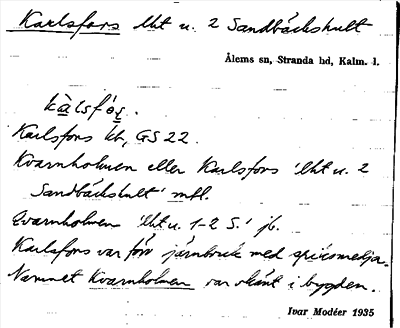 Karlsfors lht u. 2 Sandbäckshult
Ålems sn, Stranda hd, Kalm. l.
Karlsfors kb, GS 22.
Kvarnholmen eller Karlsfors 'lht u. 2
Sandbäckshult' mtl.
Qvarnholmen 'lht u. 1-2 S.' jb.
Karlsfors var förr järnbruk med spiksmedja.
Namnet Kvarnholmen var okänt i bygden.
Ivar Modéer 1935